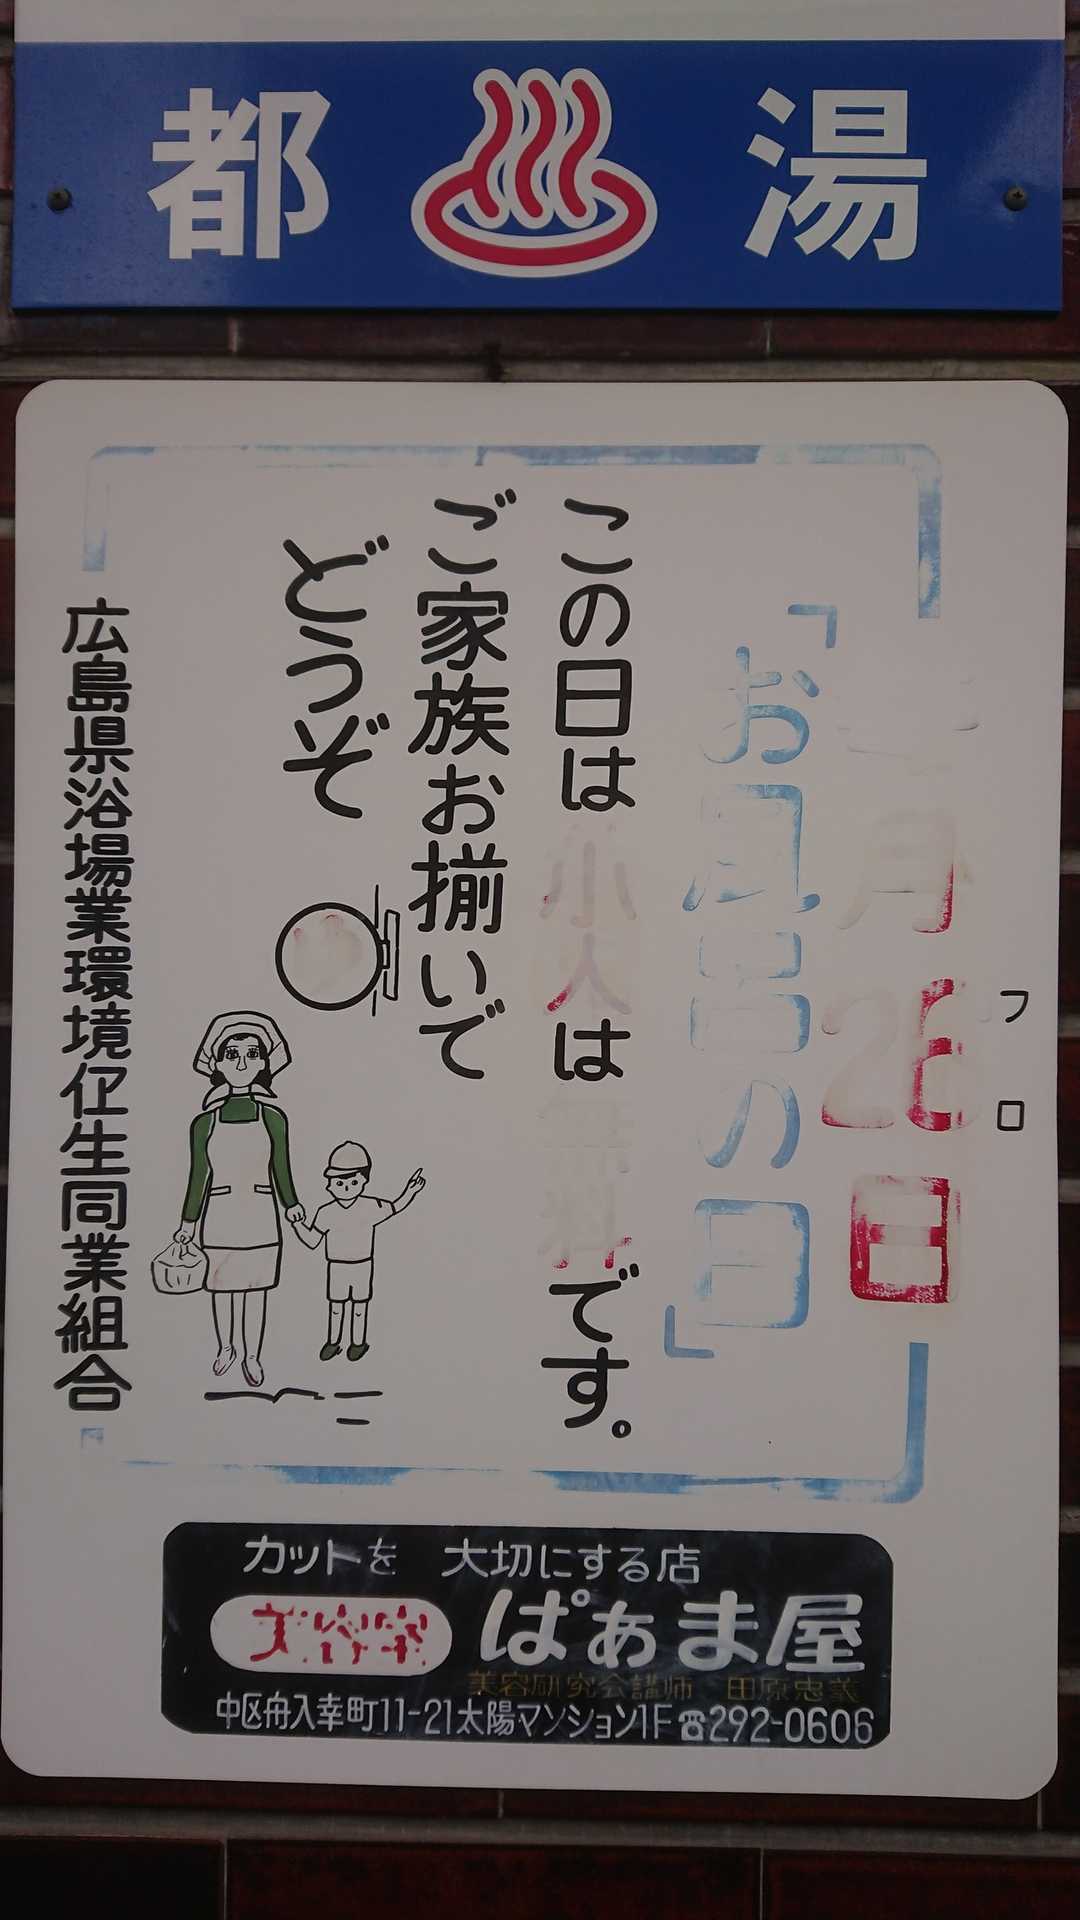 都 湯
毎月26日
フロ
「お風呂の日」
この日は小人は無料です。
ご家族お揃いで
どうぞ
ゆ
広島県浴場業環境衛生同業組合
カットを 大切にする店
美容室 ぱぁま屋
美容研究会講師 田原忠義
中区舟入幸町11-21太陽マンション1F☎292-0606